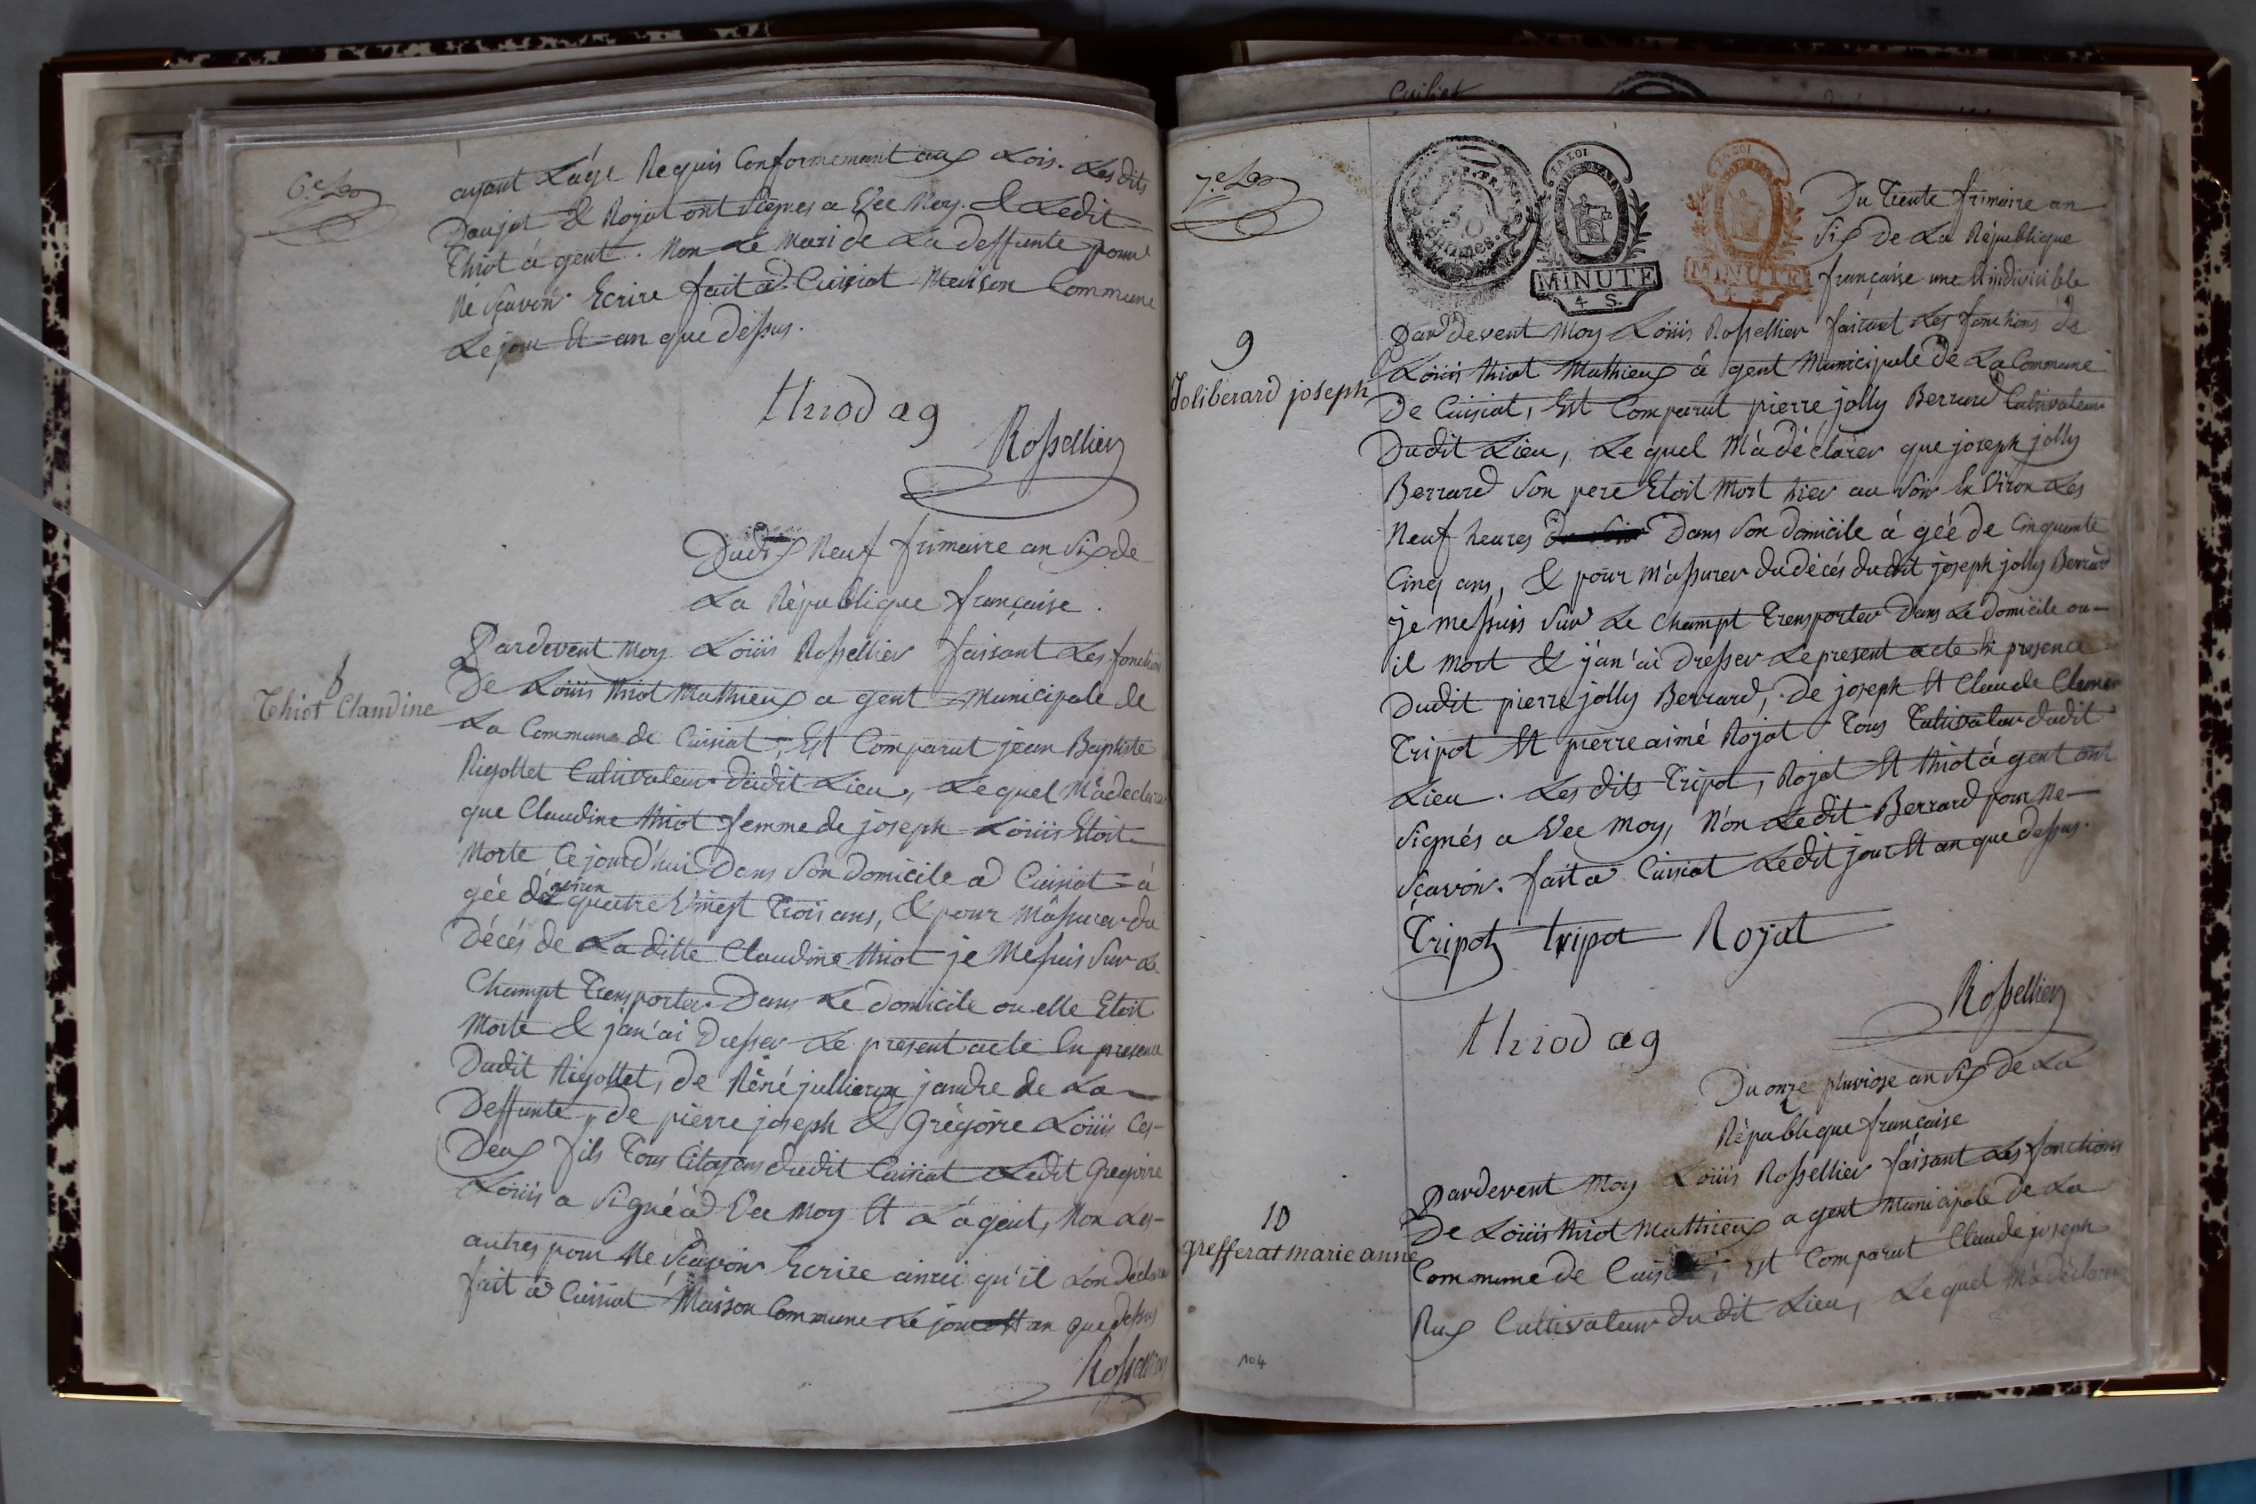 6.e
ayant L'áge Requis Conformemant aux Lois. Les dits
Daujat & Rojat ont signes a Vec Moy. & Ledit
Thiot á gent. Non Le Mari de La deffunte pour
Ne sçavoir Ecrire fait a Cuisiat Maison Commune
Le jour Et an que dessus.
thiod ag
Rossellier
Dudix Neuf frimaire an Six de
La République française.
8
Thiot Claudine
Pardevent Moy Loüis Rossellier faisant Les fonction
De Loüis thiot Mathieux a gent Municipale de
La Commune de Cuisiat, Est Comparut jean Baptiste
Rigollet Cultivateur dudit Lieu, Lequel M'a declarer
que Claudine thiot femme de joseph Loüis Etoit
Morte Ce jourd'hui Dans Son domicile a Cuisiat á
gée de quatre Vingt Trois ans, & pour M'assurer du
environ
Décés de La ditte Claudine thiot je Me suis Sur Le
Champt Transporter Dans Le domicile ou elle Etoit
Morte & j'an'ai Dresser Le present acte En presence
Dudit Rigollet, de Réné jullieron jandre de La
Deffunte, de pierre joseph & Grégoire Loüis Ces
Deux fils Tous Citoyens dudit Cuisiat Ledit Gregoire
Loüis a Signé a Vec Moy Et L'agent, Non Les
autres pour Ne Sçavoir Ecrire ainsi qu'il L'on Déclarer
fait a Cuisiat Maison Commune Le jour Et an que dessus
Rossellier
7.e
LA LOI
MINUTE
4 S.
LA LOI
MINUTE
4 S.
Du Trente frimaire an
Six De La République
française une & indivisible
9
Joliberard joseph
Par devent Moy Loüis Rossellier faisant Les fonctions de
Loüis thiot Mathieux á gent Municipale de La Commune
De Cuisiat, Est Comparut pierre jolly Berrard Cultivateur
Dudit Lieu, Le quel M'a déclárer que joseph jolly
Berrard Son pere Etoit Mort hier au Soir En Viron Les
Neuf heures Dans Son domicile á gée de Cinquante
Cinq ans, & pour M'assurer du décés dudit joseph jolly Berrard
je me suis Sur Le Champt Transporter Dans Le domicile ou
il Mort & j'an'ai Dresser Le present acte En presence
Dudit pierre jolly Berrard, De joseph Et Claude Clemen
Tripot Et pierre aimé Rojat Tous Cultivateur dudit
Lieu. Les dits Tripot, Rojat Et thiot á gent ont
Signés a Vec Moy, Non Ledit Berrard pour Ne
Sçavoir. fait a Cuisiat Ledit jour Et an que dessus.
Tripot tripot Rojat
Rossellier
thiod ag
Du onze pluviose an Six De La
République française
10
grefferat marie anne
Pardevent Moy Loüis Rossellier faisant Les fonctions
De Loüis thiot Mathieux a gent Municipale De La
Commune De Cuisiat, Est Comparut Claude joseph
Rux Cultivateur du dit Lieu, Lequel M'a déclarer
104